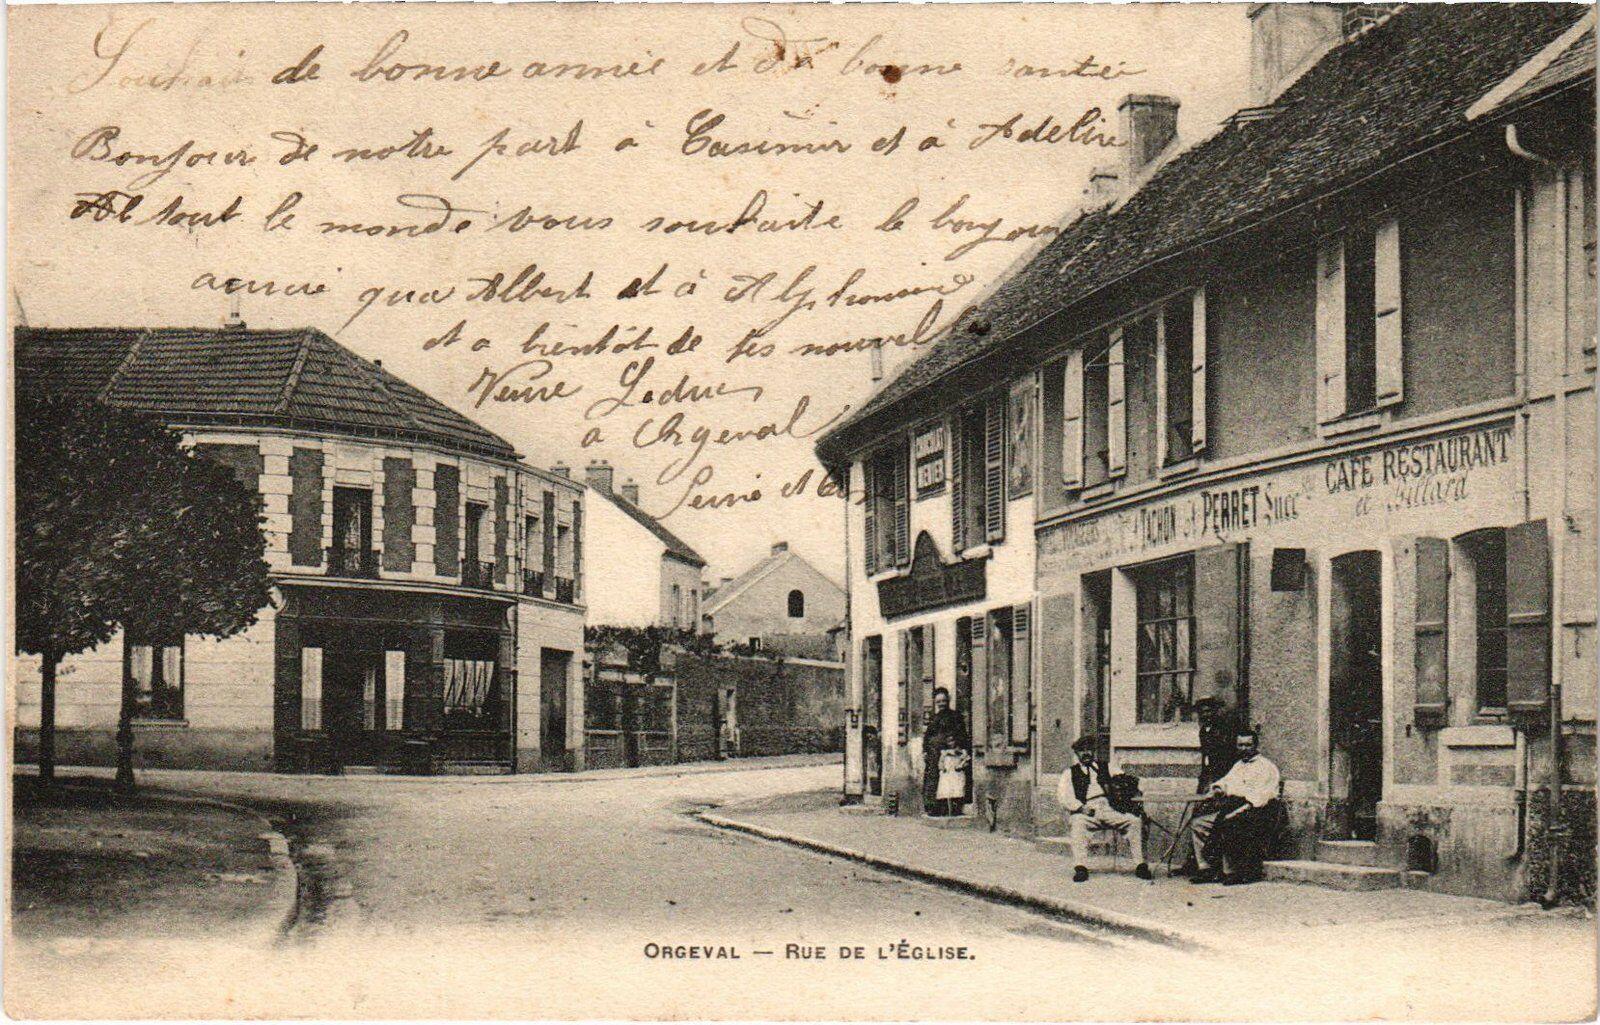 Souhait de bonne année et d  bonne santée
Bonjour de notre part à Casimir et à Adeline
tout le monde vous souhaite le bonjour
qua Albert et à Alphonsine
et a bientôt de tes nouvel
Veuve Leduc
a Orgeval
Seine et Oise
CHOCOLAT
MENIER
TACHON A PERRET Succ
CAFÉ RESTAURANT
et Billard
ORGEVAL — RUE DE L'ÉGLISE.